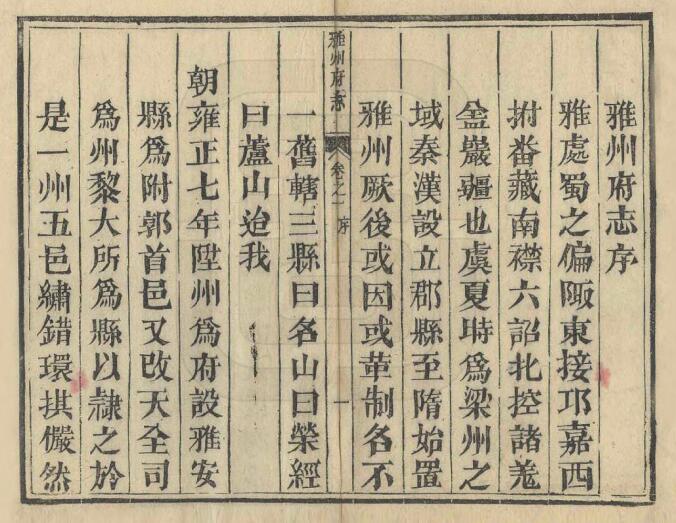 雅州府志序
雅處蜀之偏陬東接邛嘉西
拊番藏南襟六詔北控諸羗
金巖疆也虞夏時爲梁州之
域秦漢設立郡縣至隋始置
雅州厥後或因或革制名不
雅州府志
卷之一 序
一
一舊轄三縣曰名山曰榮經
曰蘆山迨我
朝雍正七年陞州爲府設雅安
縣爲附郭首邑又改天全司
爲州黎大所爲縣以隸之於
是一州五邑繡錯環拱儼然